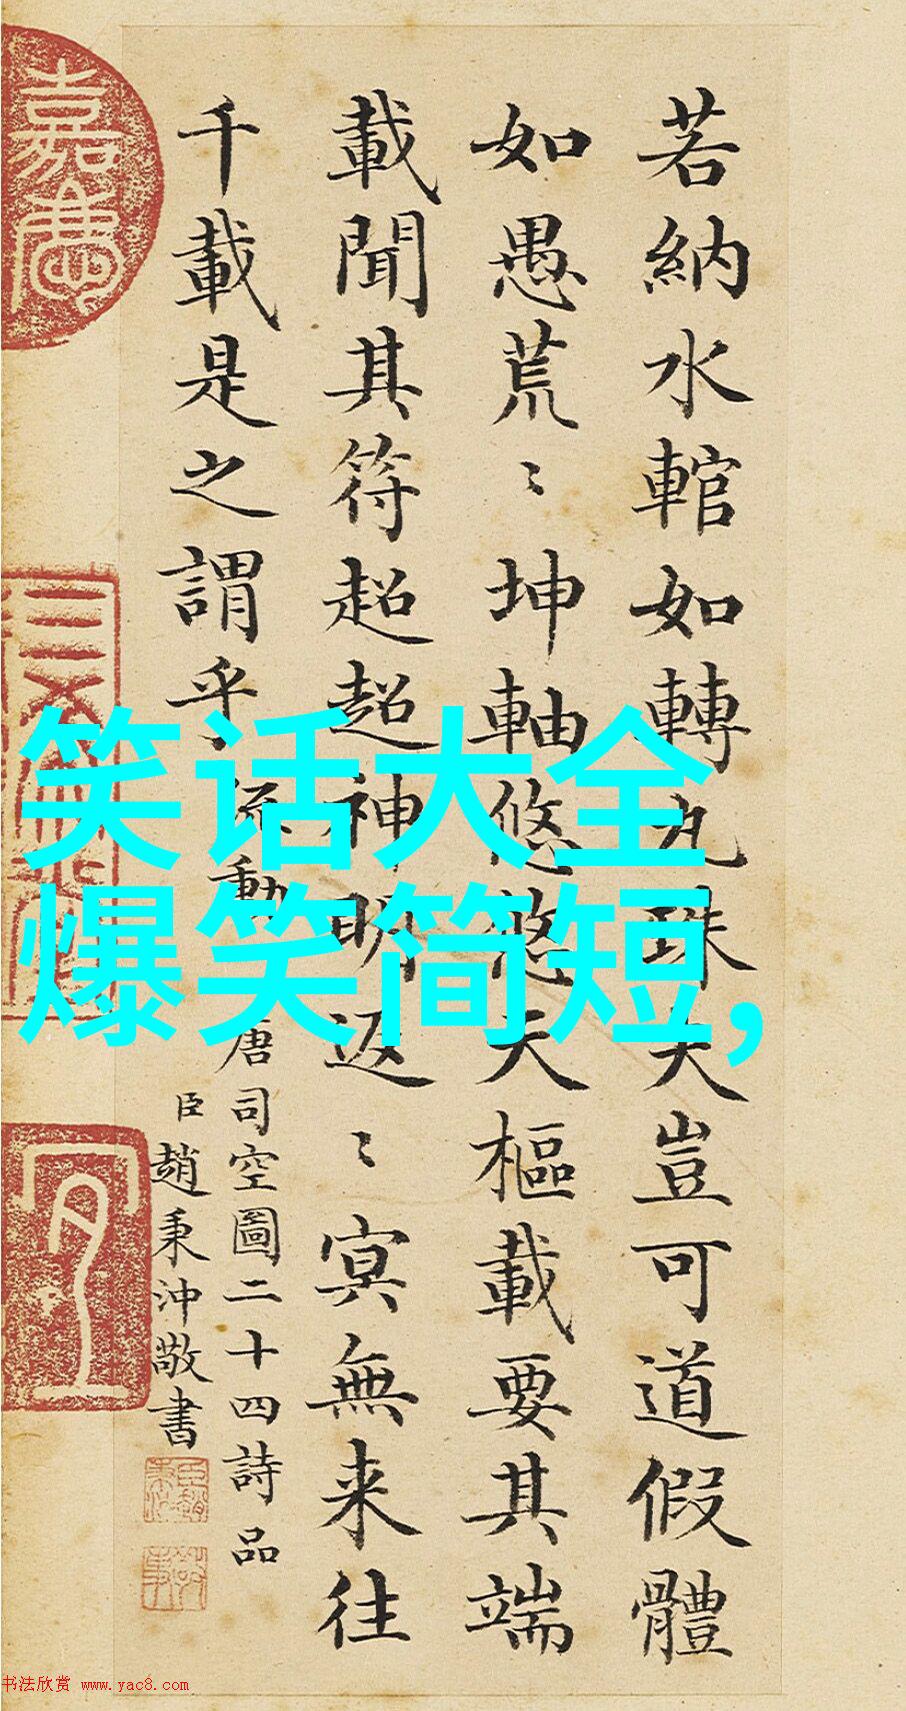 笑话大全
爆笑简短,
若納水輨如轉丸珠夫豈可道假體
如愚荒〻坤軸悠悠天樞載要其端
載聞其符超超神明返〻冥無来往
千載是之謂乎 流動
唐司空圖二十四詩品
臣趙秉沖敬書
嘉慶
书法欣赏 www.yac8.com